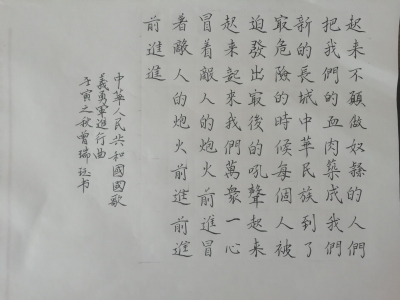 起来不願做奴隸的人們
把我們的血肉築成我們
新的長城中華民族到了
最危險的時候每個人被
迫發出最後的吼聲起来
起来起来我們萬衆一心
冒着敵人的炮火前進冒
著敵人的炮火前進前進
前進進
中華人民共和國國歌
義勇軍進行曲
壬寅之秋曾瑞书